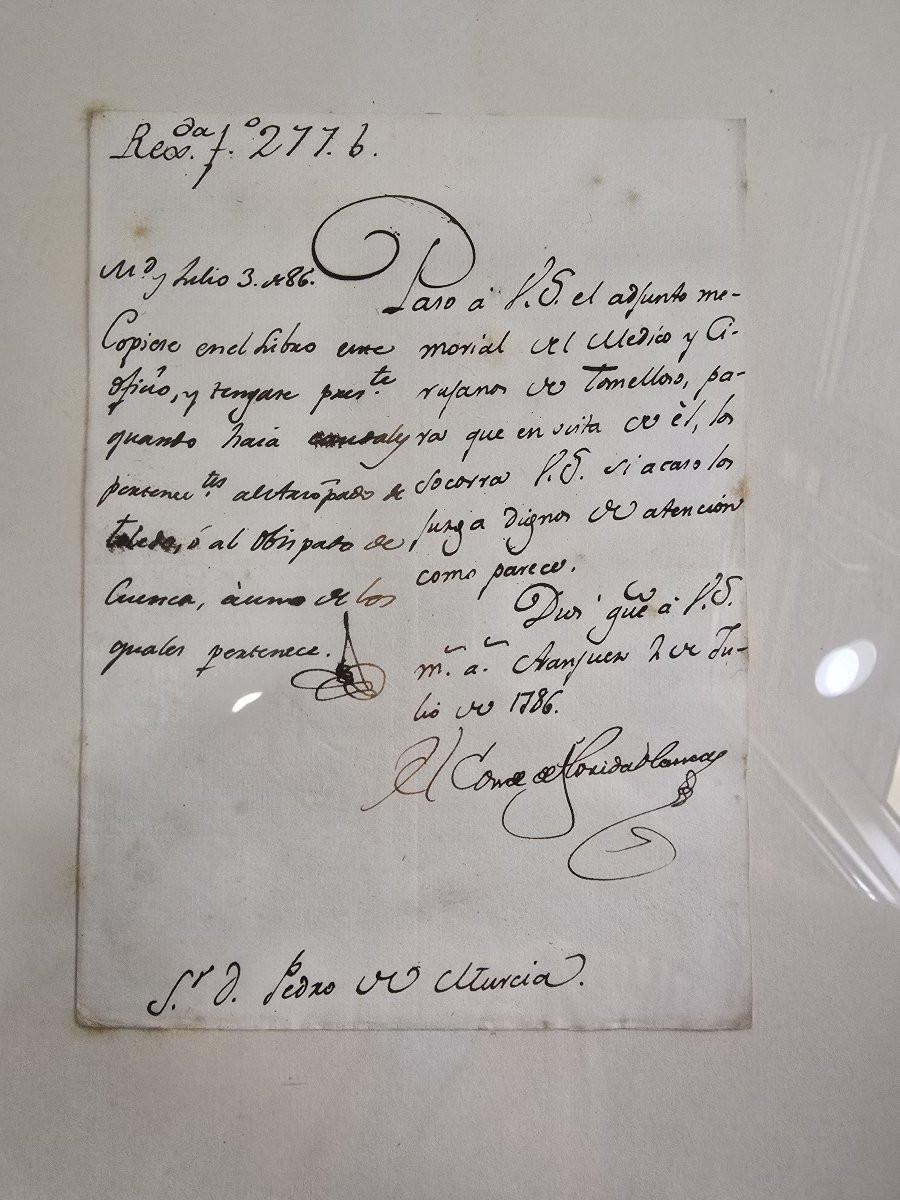 Regda. fo. 277. b.
Md. y Julio 3. de 86.
Copiese en el Libro este
Oficio, y tengase preste.
quando haia caudales
pertenectes. al Arzopado de
Toledo, ó al Obispado de
Cuenca, à uno de los
quales pertenece.
Paso à V.S. el adjunto me-
morial del Medico y Ci-
rujanos de Tomelloso, pa-
ra que en vista de èl, los
socorra V.S. si acaso los
juzga dignos de atención
como parece.
Dios gue à V.S.
ms. as. Aranjuez 2 de Ju-
lio de 1786.
El Conde de Floridablanca
Sr. D. Pedro de Murcia.